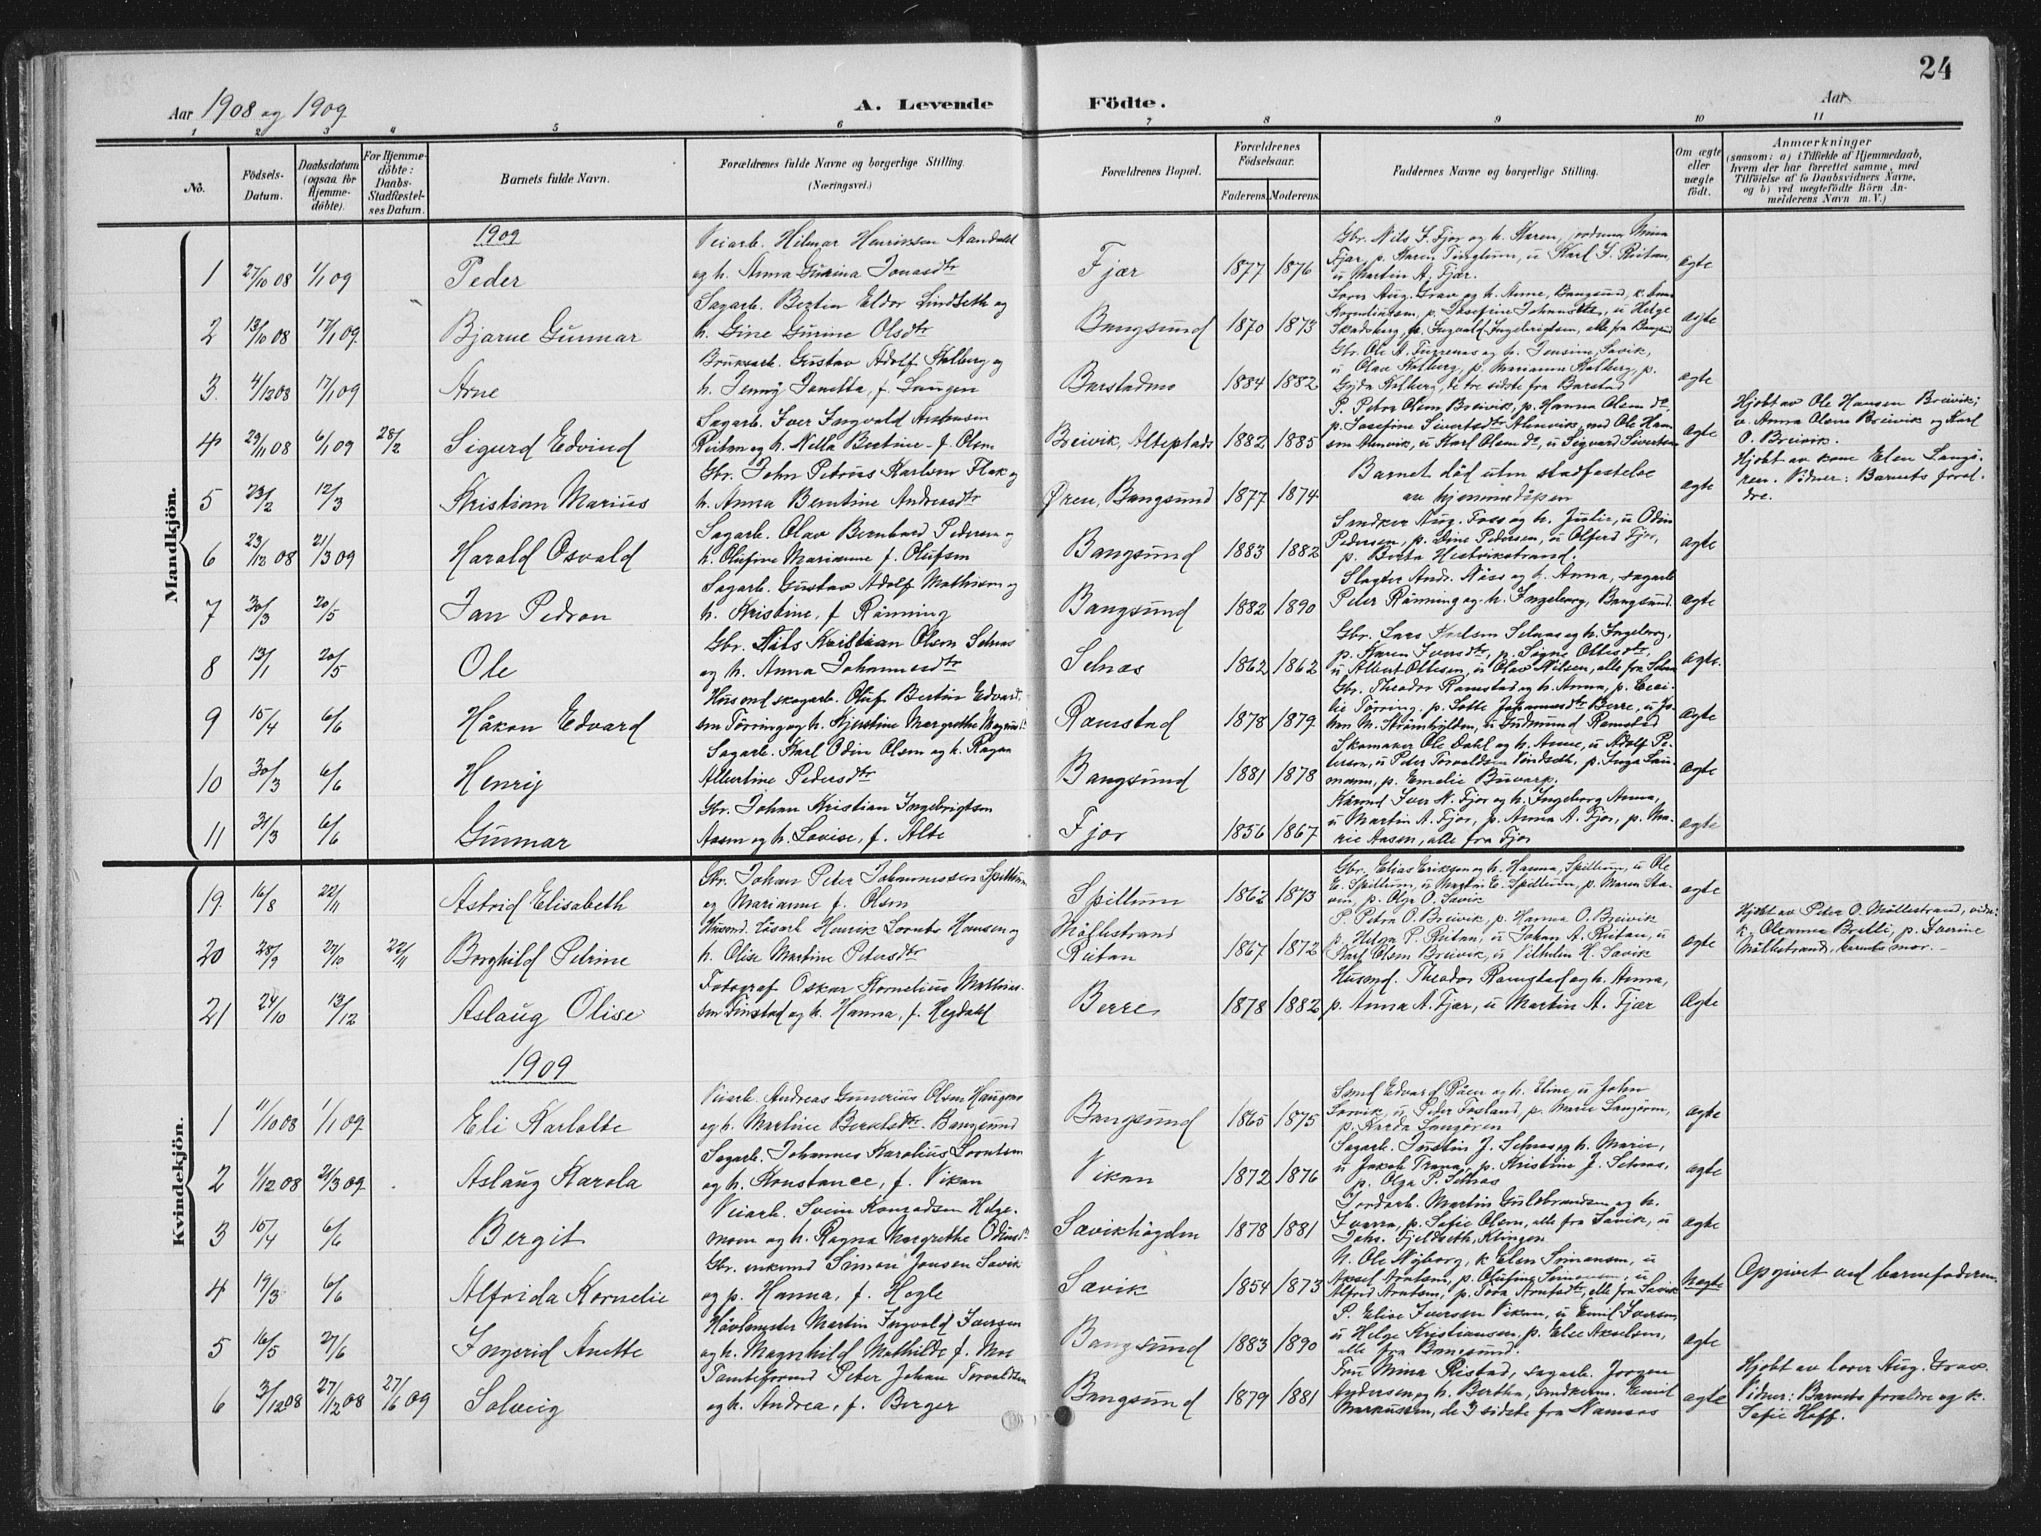 24
Aar 1908 og 1909
A. Levende Födte.
Aar
1 2 3 4 5 6 7 8 9 10 11
No.
Födsels-Datum.
Daabsdatum (ogsaa for Hjemmedöbte).
For Hjemmedöbte: Daabs-Stadfæstelses Datum.
Barnets fulde Navn.
Forældrenes fulde Navne og borgerlige Stilling. (Næringsvei.)
Forældrenes Bopæl.
Forældrenes Födselsaar.
Faderens. Moderens.
Faddernes Navne og borgerlige Stilling.
Om ægte eller uægte födt.
Anmærkninger
(saasom: a) i Tilfælde af Hjemmedaab, hvem der har forrettet samme, med Tilföielse af to Daabsvidners Navne, og b) ved uegtefödte Börn Anmelderens Navn m. V.)
Mandkjön.
1909
1 27/10 08 1/1 09 Peder
Veiarb. Hilmar Henriksen Aandahl
og h. Anna Gurina Jonasdtr
Fjær 1877 1876
Gbr. Nils S. Fjor og h. Karen, jordmor Mina
Fjær, p. Karen Tinglum, u Karl S. Reitan
u Martin A. Fjær.
ægte
2 13/10 08 17/1 09 Bjarne Gunnar
Sagarb. Bezten Eldor Lindseth og
h. Gine Gurine Olsdtr
Bangsund 1870 1873
ægte
3 4/12 08 17/1 09 Arne
Bruksarb. Gustav Adolf Kolberg og
h. Jenny Janetta, f. Laugen
Barstadmo 1884 1882
u Olav Kolberg, p. Marianne Kolberg, p.
Gyda Kolberg, de tre sidste fra Barstad
ægte
4 29/11 08 6/1 09 28/2 Sigurd Edvind
Sagarb. Iver Ingvald Andersen
Reitan og h. Nella Bertine f. Olsen
Breivik, Alteplads 1882 1885
P. Petra Olsen Breivik, p. Hanna Olsen dto,
p. Josefine Sivertsdtr Atenvik, ved Ole Han-
sen Atenvik, u Karl Olsen dto, u Sigvard Sivertsen
ægte
Hjdbt av Ole Hansen Breivik;
v. Anna Olsen Breivik og Karl
O. Breivik.
5 23/2 12/3 Kristian Marius
Gbr. John Petrus Karlsen Flak og
h. Anna Berntine Andreasdtr
Øren, Bangsund 1877 1874
Barnet död uten stadfestelse
av hjemmedåpen
ægte
Hjdbt av kone Elen Langö-
ren. Vidner: Barnets foræl-
dre.
6 23/12 08 21/3 09 Harald Osvald
Sagarb. Olav Bernhard Pedersen og
h. Olufine Marianne f. Olufsen
Bangsund 1883 1882
Snedker Aug. Foss og h. Julie, u Odin
Pedersen, p. Dine Pedersen, u Olferd Fjor,
p. Berta Hestvikstrand.
ægte
7 30/3 20/5 Jan Pedron
Sagarb. Gustav Adolf Mathisen og
h. Kristine, f. Rånning
Bangsund 1882 1890
Slagter Andr. Näss og h. Anna, sagarb
Peter Rånning og h. Ingeborg, Bangsund.
ægte
8 13/1 20/5 Ole
Gbr. Nils Kristian Olsen Selnæs
og h. Anna Johannesdtr
Selnæs 1862 1862
Gbr. Lars Karlsen Selnæs og h. Ingeborg,
p. Karen Iversdtr, p. Signe Ottesdtr,
u Albert Ottesen, u Olav Nilsen, alle fra Selnæs
ægte.
9 15/4 6/6 Håkon Edvard
Husmd skogarb. Oluf Bertin Edvard-
sen Törring og h. Kjerstine Margrethe Magnusdtr
Ramstad 1878 1879
Gbr. Theodor Ramstad og h. Anna, p. Ceci-
lie Törring, p. Lotte Johannesdtr Berre, u Jo-
han M. Strömhylden, u Gudmund Ramstad
ægte
10 30/3 6/6 Henry
Sagarb. Karl Odin Olsen og h. Ragna
Albertine Pedersdtr
Bangsund 1881 1878
Skomaker Ole Dahl og h. Anne, u Adolf Pe-
terson, u Peter Torvaldsen Vindseth, p. Inga Lau-
mann, p. Emelie Buvarp.
ægte
11 31/3 6/6 Gunnar
Gbr. Johan Kristian Ingebrigtsen
Aasen og h. Lovise, f. Alte
Fjor 1856 1867
Kårmd Iver N. Fjor og h. Ingeborg Anna,
u Martin A. Fjor, p. Anna A. Fjor, p. Ma-
rie Aasen, alle fra Fjor
ægte
Kvindekjön.
19 16/8 22/11 Astrid Elisabeth
Gbr. Johan Peter Johannessen Spillum
og Marianne f. Olsen
Spillum 1862 1873
Gbr. Elias Eriksen og h. Hanna, Spillum, u Ole
E. Spillum, u Martin E. Spillum, p. Maren Sta-
vin, p. Olga O. Savik
ægte
20 28/9 27/10 22/11 Borghild Petrine
Husmd. lösarb Henrik Lornts Hansen og
h. Olise Martine Petersdtr
Möllestrand
Reitan 1867 1872
P. Petra O. Breivik, p. Hanna O. Breivik
p. Helga P. Reitan, u Johan A. Reitan, u
Karl Olsen Breivik, u Vilhelm H. Savik
ægte
Hjdbt av Peter O. Möllestrand, vidn:
k. Oleanna Brelli, p. Iverine
Möllestrand, barnets mor.
21 24/10 13/12 Aslaug Olise
Fotograf Oskar Kornelius Mathias-
sen Finstad og h. Hanna, f. Hegdahl
Berre 1878 1882
Husmd. Theodor Ramstad og h. Anna,
p. Anna A. Fjær, u Martin A. Fjær
ægte
1909
1 11/10 08 1/1 09 Eli Karlotte
Veiarb. Andreas Gunerius Olsen Haugmo
og h. Martine Berntsdtr Bangsund
Bangsund 1865 1875
Smed Edvard Råen og h. Eline, u John
Savik, u Peter Fosland, p. Marie Langören,
p. Karda Langören
ægte
2 1/12 08 21/3 09 Aslaug Karola
Sagarb. Johannes Karolius Lorntsen
og h. Konstance, f. Vikan
Vikan 1872 1876
Sagarb. Justin J. Selnæs og h. Marie,
u Jakob Trana, p. Kristine J. Selnæs,
p. Olga P. Selnæs
ægte
3 15/4 6/6 Bergit
Veiarb. Svein Konradsen Helge-
moen og h. Ragna Margrethe Odinsdtr
Savikhögden 1878 1881
Jordarb. Martin Guldbrandsen og h.
Ivara, p. Sofie Olsen, alle fra Savik, u
Johs. Fjeldseth, Klingen
ægte
4 19/3 6/6 Alfrida Kornelie
Gbr. enkemd Simon Jonsen Savik
og p. Hanna, f. Hogle
Savik 1854 1873
N. Ole Nyborg, k Elen Simonsen, u
Aksel Arntsen, p. Olufine Simonsen, u
Alfred Arntsen, p. Tora Arntsdtr, alle fra Savik
Uægte
Opgivet ved barnefaderen.
5 16/5 27/6 Ingerid Anette
Hövlemester Martin Ingvald Iversen
og h. Magnhild Mathilde f. Moe
Bangsund 1883 1890
P. Elise Iversen Vikan, u Emil Iversen,
u Helge Kristiansen, p. Elise Akselsen,
alle fra Bangsund.
ægte
6 3/12 08 27/12 08 27/6 09 Solveig
Tomteformd Peter Johan Torvaldsen
og h. Andrea, f. Berger
Bangsund 1879 1881
Fru Mina Ristad, sagarb. Jörgen
Andersen og h. Bertha, snedkerm. Remil
Markussen, de 3 sidste fra Namsos
ægte
Hjdbt av lærer Aug. Grav.
Vidner: Barnets forældre og k.
Sofie Hoff.